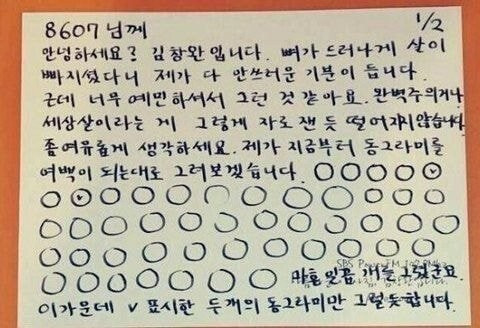 8607님께 1/2
안녕하세요? 김창완입니다. 뼈가 드러나게 살이
빠지셨다니 제가 다 안쓰러운 기분이 듭니다.
근데 너무 예민하셔서 그런 것 같아요. 완벽주의거나
세상살이라는 게 그렇게 자로 잰 듯 떨어지지않습니다
좀여유롭게 생각하세요. 제가 지금부터 동그라미를
여백이 되는대로 그려보겠습니다.
SBS Power FM 107.7Mhz
마흔일곱 개를 그렸군요
이가운데 v 표시한 두개의 동그라미만 그럴듯합니다.